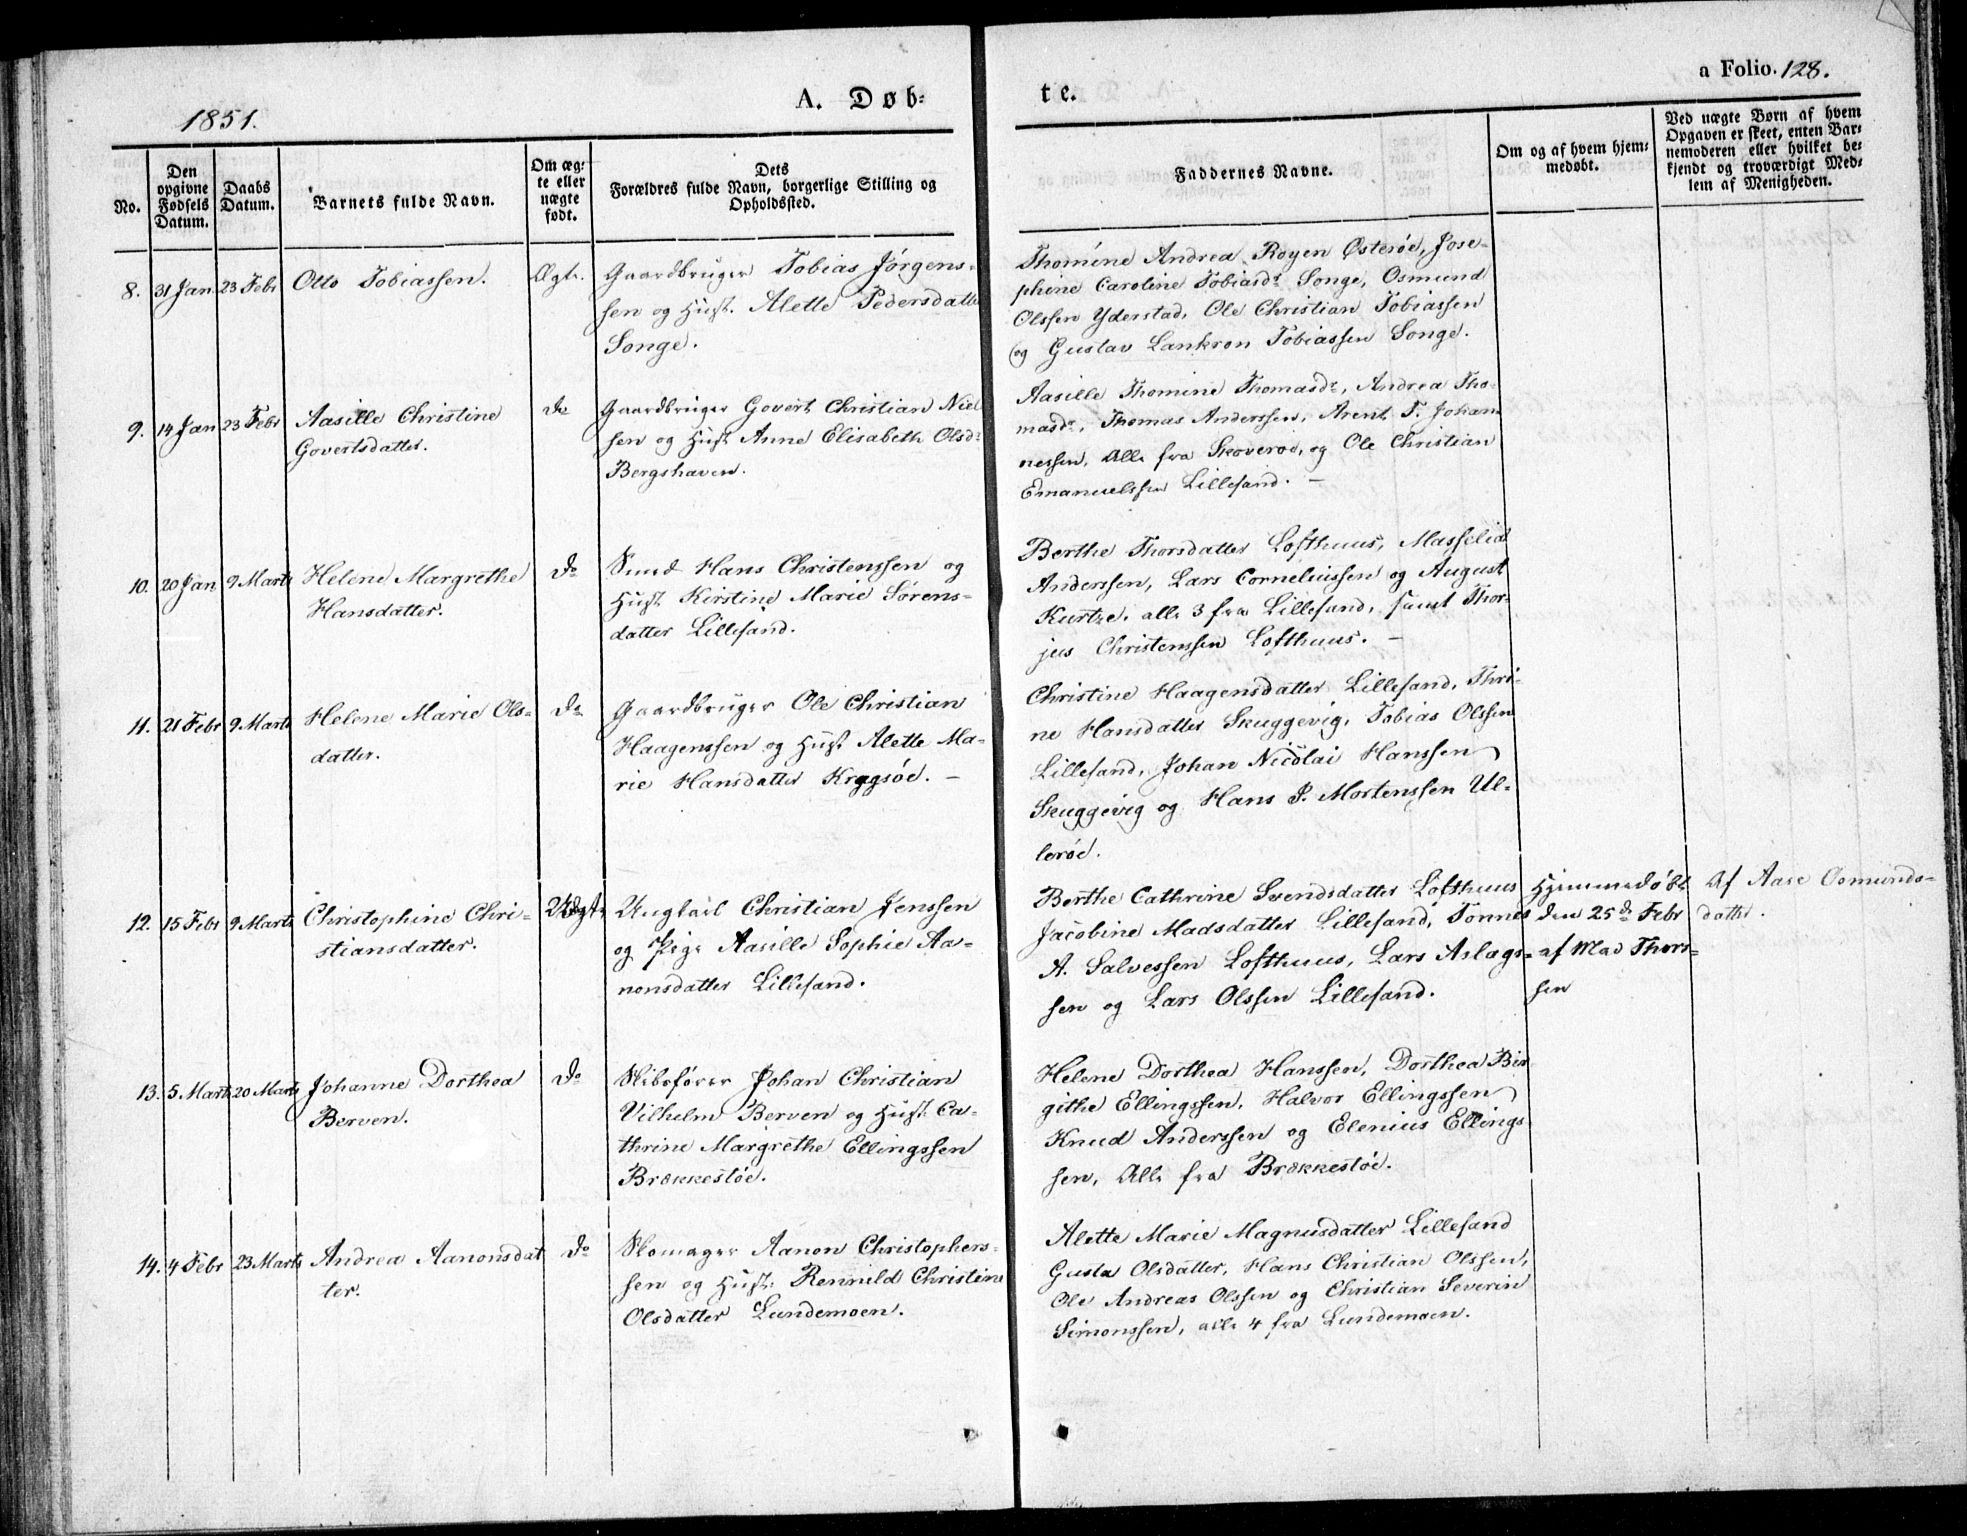 1851.
A. Døb-
te.
a Folio. 128.
No.
Den
opgivne
Fødsels
Datum.
Daabs
Datum.
Barnets fulde Navn.
Om æg-
te eller
uægte
født.
Dets
Forældres fulde Navn, borgerlige Stilling og
Opholdssted.
Faddernes Navne.
Om og af hvem hjem-
medøbt.
Ved uægte Børn af hvem
Opgaven er skeet, enten Bar-
nemoderen eller hvilket be-
kjendt og troværdigt Med-
lem af Menigheden.
8. 31 Jan 23 Febr Otto Tobiassen. Ægte.
Gaardbruger Tobias Jørgens-
sen og Hust. Alette Pedersdatte
Songe.
Thomine Andrea Royen Østerøe, Jose-
phine Caroline Tobiasdr Songe, Osmund
Olssen Yderstad, Ole Christian Tobiassen
og Gustav Lankron Tobiassen Songe.
9. 14 Jan 23 Febr Aasille Christine
Govertsdatter.
do
Gaardbruger Govert Christian Niel
sen og Hust Anne Elisabeth Olsdr
Bergshaven.
Aasille Thomine Thomasdr, Andrea Tho-
masdr, Thomas Anderssen, Arent T. Johan
nessen, Alle fra Skoverøe, og Ole Christian
Emanuelssen Lillesand. –
10. 20 Jan 9 Marts Helene Margrethe
Hansdatter.
do
Smed Hans Christenssen og
Hust Kirstine Marie Sørens-
datter Lillesand.
Berthe Thorsdatter Lofthuus, Masselia
Anderssen, Lars Corneliussen og August
Kurtze, alle 3 fra Lillesand, samt Thor-
jus Christenssen Lofthuus. –
11. 21 Febr 9 Marts Helene Marie Ols-
datter.
do
Gaardbruger Ole Christian
Haagenssen og Hust Alette Ma-
rie Hansdatter Krygsøe. –
Christine Haagensdatter Lillesand, Thri-
ne Hansdatter Skuggevig, Tobias Olssen
Lillesand, Johan Nicolai Hanssen
Skuggevig og Hans P. Mortenssen Ul-
lerøe.
12. 15 Febr 9 Marts Christophine Chri-
stiansdatter.
Uægte
Ungkarl Christian Jenssen
og Pige Aasille Sophie Aa-
nonsdatter Lillesand.
Berthe Cathrine Svendsdatter Lofthuus
Jacobine Madsdatter Lillesand, Tønnes
A. Salvessen Lofthuus, Lars Aslags-
sen og Lars Olssen Lillesand.
Hjemmedøbt
den 25de Febr
af Mad Thors-
sen
Af Aase Osmunds-
datter.
13. 5 Marts 20 Marts Johanne Dorthea
Berven.
do
Skibsfører Johan Christian
Vilhelm Berven og Hust Ca-
thrine Margrethe Ellingssen
Brækkestøe.
Helene Dorthea Hanssen, Dorthea Bir
githe Ellingssen, Halvor Ellingssen
Knud Anderssen og Elenius Ellings
sen, Alle fra Brækkestøe.
14. 4 Febr 23 Marts Andrea Aanonsdat
ter.
do
Skomager Aanon Christophers-
sen og Hust: Rennild Christine
Olsdatter Lundemoen.
Alette Marie Magnusdatter Lillesand
Gusta Olsdatter, Hans Christian Olssen,
Ole Andreas Olssen og Christian Severin
Simonssen, alle 4 fra Lundemoen.